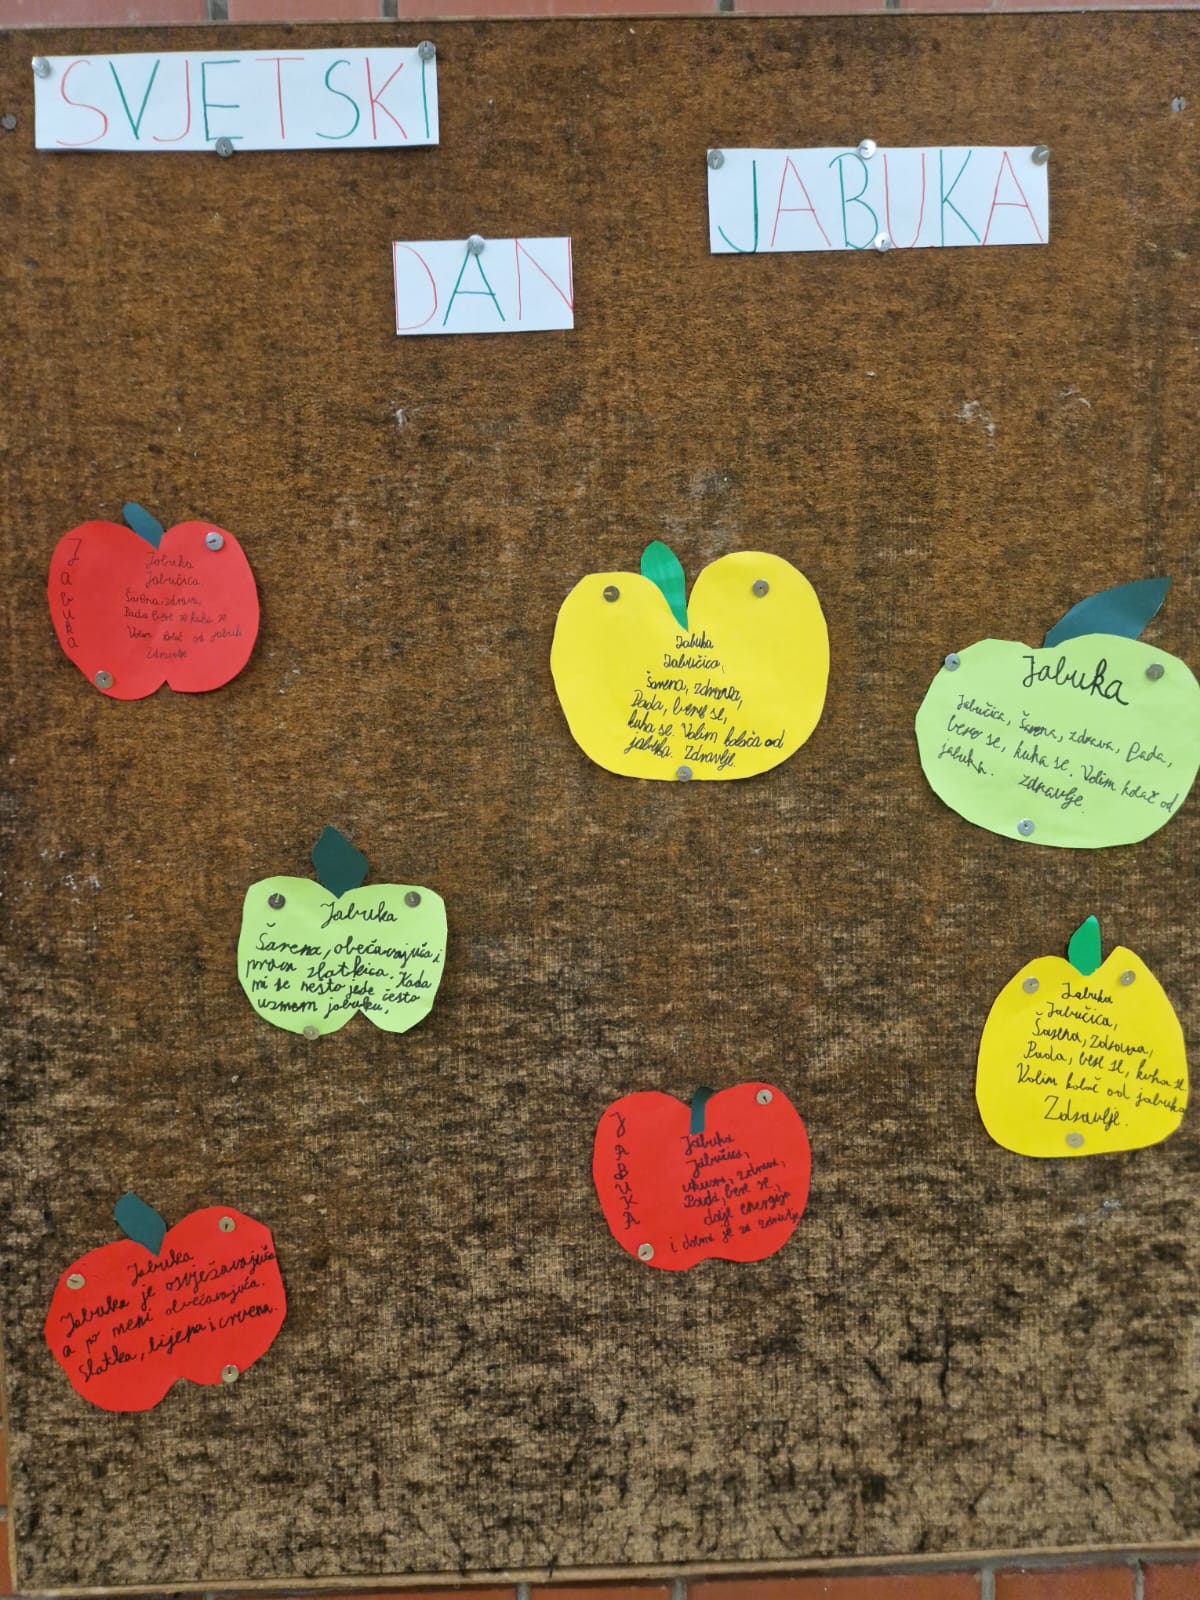 SVJETSKI
DAN
JABUKA
Jabuka
Jabuka
Jabučica
Šarena, zdrava,
Pada bere se kuha se
Volim kolač od jabuk
Zdravlje
Jabuka
Jabučica,
Šarena, zdrava,
Pada, bere se,
kuha se. Volim kolača od
jabuka. Zdravlje.
Jabuka
Jabučica, Šarena, zdrava, Pada,
bere se, kuha se. Volim kolač od
jabuka. zdravlje.
Jabuka
Šarena, obećavajuća i
prava slatkica. Kada
mi se nešto jede često
uzmem jabuku.
Jabuka
Jabučica,
Šarena, zdrava,
Pada, bere se, kuha se
Volim kolač od jabuka
Zdravlje.
Jabuka
Jabučica,
ukusna, zdrava,
Pada, bere se,
daje energiju
i dobra je za zdravlje
Jabuka
Jabuka je osvježavajuća
a po meni obećavajuća.
Slatka, lijepa i crvena.